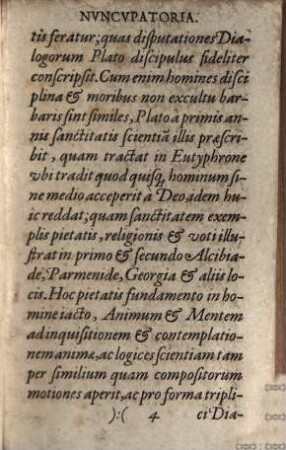 NVNCVPATORIA.
tis feratur; quas disputationes Dia-
logorum Plato discipulus fideliter
conscripsit. Cum enim homines disci
plina & moribus non excultu bar-
baris sint similes, Plato a primis an-
nis sanctitatis scientiā illis præscri-
bit, quam tractat in Eutyphrone
vbi tradit quod quisq, hominum si-
ne medio acceperit à Deo, idem hu-
ic reddat; quam sanctitatem exem-
plis pietatis, religionis & voti illu-
strat in primo & secundo Alcibia-
de, Parmenide, Georgia & aliis lo-
cis. Hoc pietatis fundamento in ho-
mine iacto, Animum & Mentem
ad inquisitionem & contemplatio-
nem animæ, ac logices scientiam tam
per similium quam compositorum
motiones aperit, ac pro forma tripli-
):( 4 ci Dia-